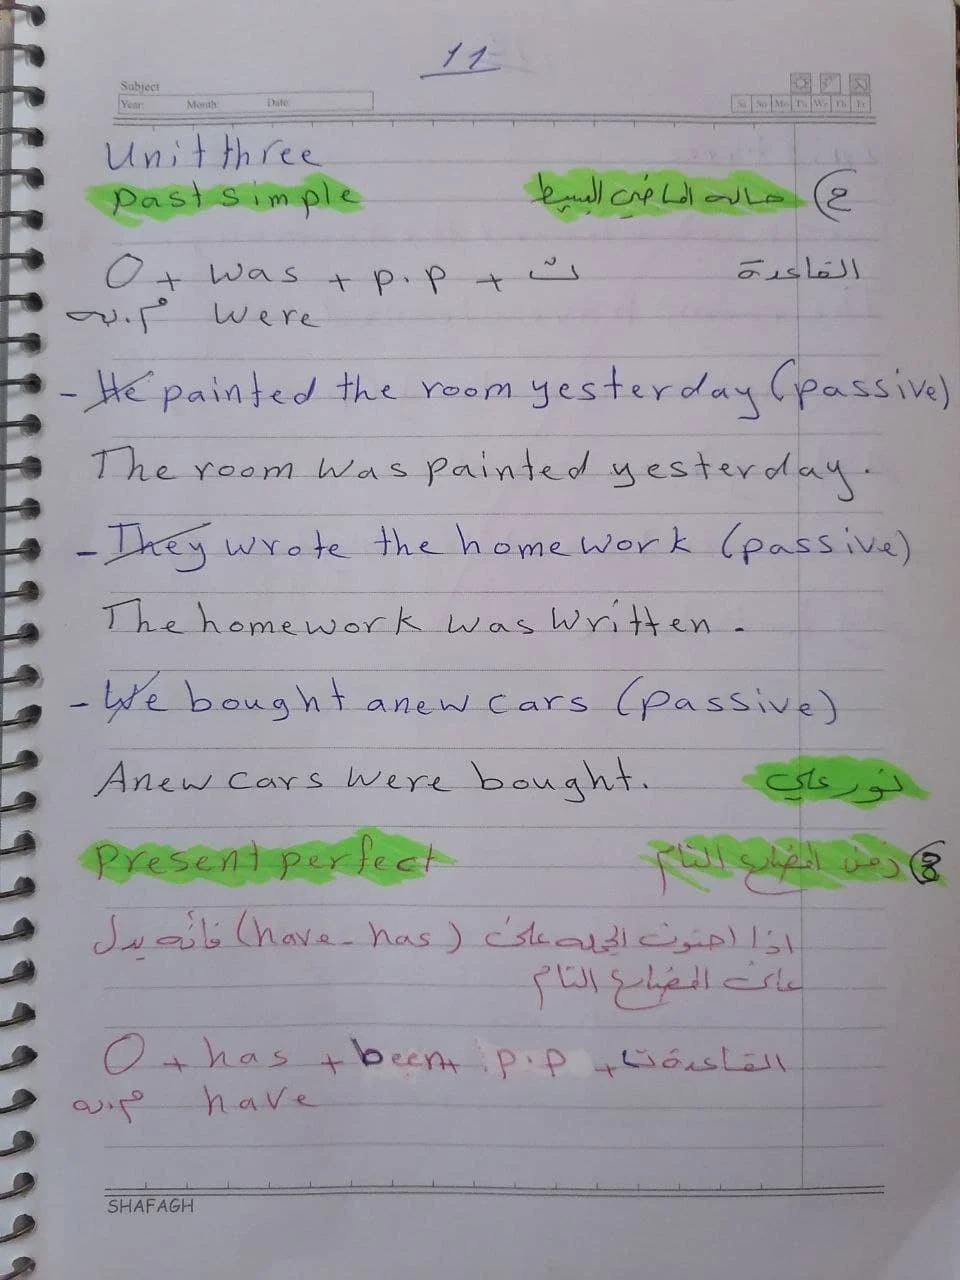 11
Subject
Year: Month: Date:
Sa Su Mo Tu We Th Fr
Unit three
past simple حاله الماضي البسيط (ع
O + was + p.p + ت القاعدة
م.به were
- He painted the room yesterday (passive)
The room was painted yesterday.
- They wrote the homework (passive)
The homework was written.
- We bought anew cars (passive)
Anew cars were bought. نور علي
present perfect زمن المضارع التام
اذا احتوت الجمله على (have - has) فانه يدل
على المضارع التام
O + has + been + p.p + ت القاعدة
م.به have
SHAFAGH